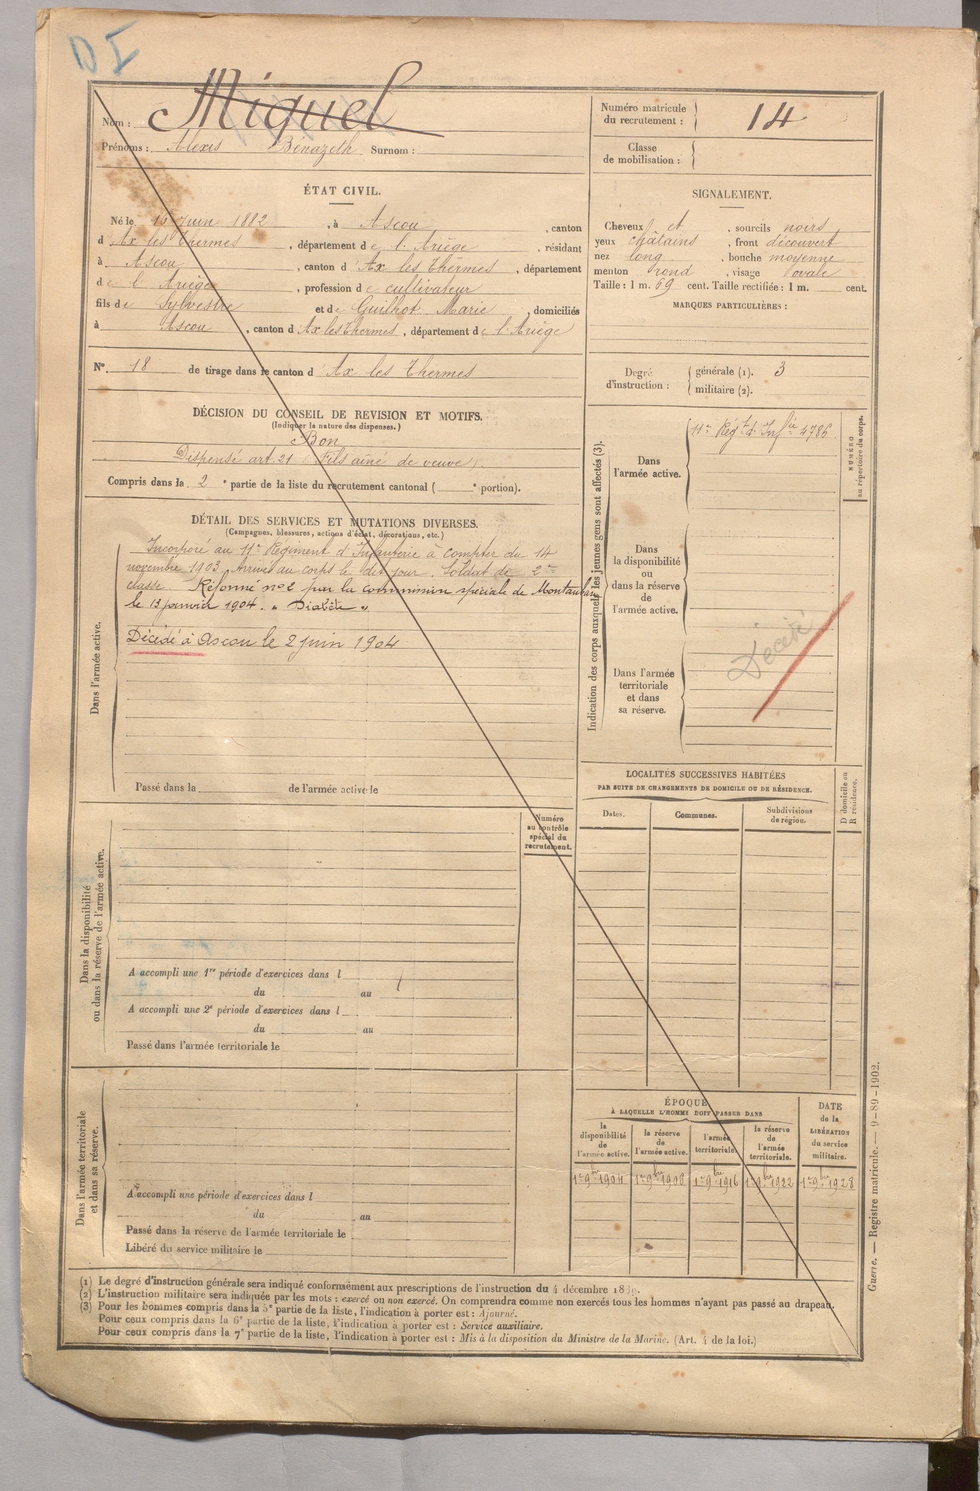 DI
Nom : Miquel
Prénoms : Alexis Bénazeth Surnom :
ÉTAT CIVIL.
Né le 16 Juin 1882, à Ascou, canton
d'Ax les Thermes, département de l'Ariège, résidant
à Ascou, canton d'Ax les Thermes, département
de l'Ariège, profession de cultivateur
fils de Sylvestre et de Guilhot Marie, domiciliés
à Ascou, canton d'Ax les Thermes, département de l'Ariège
N° 18 de tirage dans le canton d'Ax les Thermes
DÉCISION DU CONSEIL DE REVISION ET MOTIFS.
(Indiquer la nature des dispenses.)
Bon
Dispensé art. 21 Fils aîné de veuve
Compris dans la 2e partie de la liste du recrutement cantonal ( e portion).
DÉTAIL DES SERVICES ET MUTATIONS DIVERSES.
(Campagnes, blessures, actions d'éclat, décorations, etc.)
Dans l'armée active.
Incorporé au 11e Régiment d'Infanterie à compter du 14
novembre 1903. Arrivé au corps le dit jour. Soldat de 2e
classe. Réformé n°2 par la commission spéciale de Montauban
le 13 janvier 1904. « Diabète »
Décédé à Ascou le 2 juin 1904
Passé dans la de l'armée active le
Dans la disponibilité
ou dans la réserve de l'armée active.
Numéro
au contrôle
spécial du
recrutement.
A accompli une 1re période d'exercices dans l
du au
A accompli une 2e période d'exercices dans l
du au
Passé dans l'armée territoriale le
Dans l'armée territoriale
et dans sa réserve.
A accompli une période d'exercices dans l
du au
Passé dans la réserve de l'armée territoriale le
Libéré du service militaire le
Numéro matricule
du recrutement : 14
Classe
de mobilisation :
SIGNALEMENT.
Cheveux et, sourcils noirs
yeux châtains, front découvert
nez long, bouche moyenne
menton rond, visage ovale
Taille : 1 m. 69 cent. Taille rectifiée : 1 m. cent.
MARQUES PARTICULIÈRES :
Degré
d'instruction :
générale (1). 3
militaire (2).
Indication des corps auxquels les jeunes gens sont affectés (3).
NUMÉRO
au répertoire du corps.
Dans
l'armée active.
11e Régt d'Infie 4786
Dans
la disponibilité
ou
dans la réserve
de
l'armée active.
Dans l'armée
territoriale
et dans
sa réserve.
Décédé
LOCALITÉS SUCCESSIVES HABITÉES
PAR SUITE DE CHANGEMENTS DE DOMICILE OU DE RÉSIDENCE.
Dates. Communes. Subdivisions
de région.
D domicile ou
R résidence.
ÉPOQUE
À LAQUELLE L'HOMME DOIT PASSER DANS
DATE
de la
LIBÉRATION
du service
militaire.
la
disponibilité
de
l'armée active.
la réserve
de
l'armée active.
l'armée
territoriale.
la réserve
de
l'armée
territoriale.
1er 9bre 1904 1er 9bre 1908 1er 9bre 1916 1er 9bre 1922 1er 9bre 1928
(1) Le degré d'instruction générale sera indiqué conformément aux prescriptions de l'instruction du 4 décembre 1889.
(2) L'instruction militaire sera indiquée par les mots : exercé ou non exercé. On comprendra comme non exercés tous les hommes n'ayant pas passé au drapeau.
(3) Pour les hommes compris dans la 5e partie de la liste, l'indication à porter est : Ajourné.
Pour ceux compris dans la 6e partie de la liste, l'indication à porter est : Service auxiliaire.
Pour ceux compris dans la 7e partie de la liste, l'indication à porter est : Mis à la disposition du Ministre de la Marine. (Art. 4 de la loi.)
Guerre. — Registre matricule. — 9-89-1902.